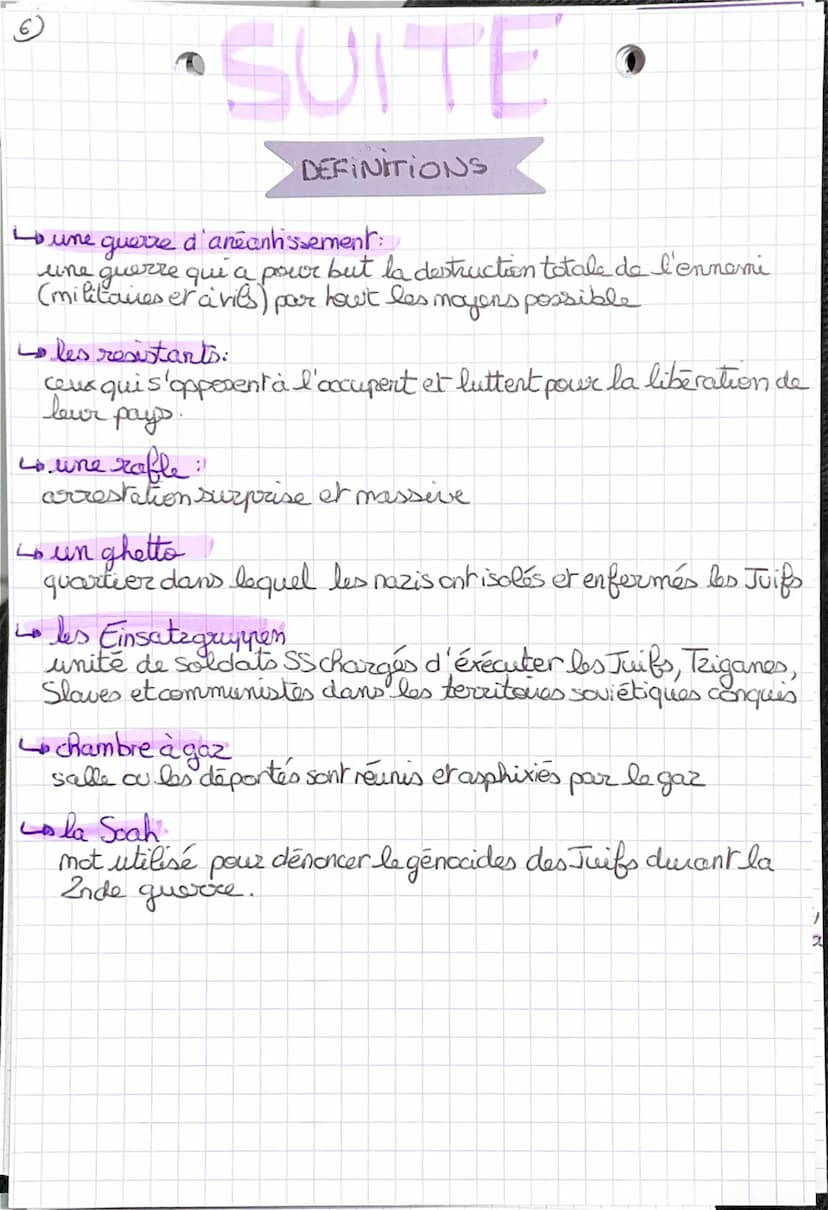 6
SUITE
DEFINITIONS
↳ une guerre d'anéantissement:
une guerre qui a pour but la destruction totale de l'ennemi
(militaires et civils) par tout les moyens possible
↳ les resistants:
ceux qui s'opposent à l'occupent et luttent pour la libération de
leur pays.
↳ une rafle:
arrestation surprise et massive
↳ un ghetto
quartier dans lequel les nazis ont isolés et enfermés les Juifs
↳ les Einsatzgruppen
unité de soldats SS chargés d'éxécuter les Juifs, Tziganes,
Slaves et communistes dans les territoires soviétiques conquis
↳ chambre à gaz
salle ou les déportés sont réunis et asphixiés par le gaz
↳ la Soah
mot utilisé pour dénoncer le génocides des Juifs durant la
2nde guerre.